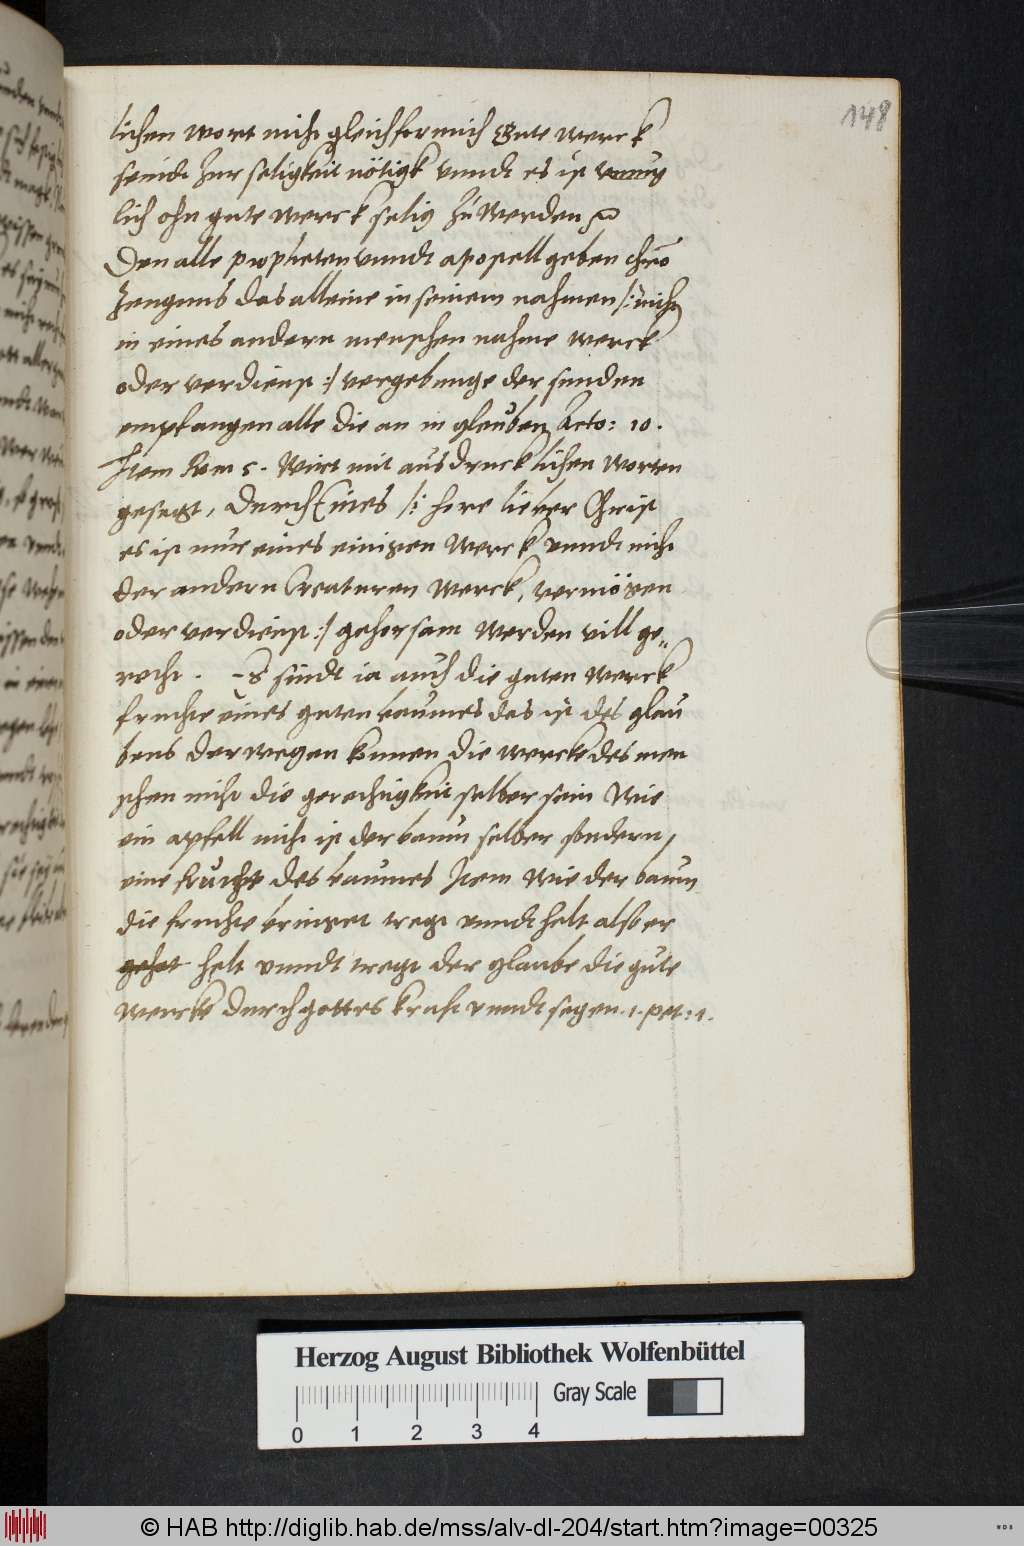 148
lichen wort nicht gleichformich Gute werck
seindt zur seligkeit nötigk vnndt es ist vnmug
lich ohn gute werck selig zu werden
Den alle propheten vnndt apostell geben chro
zeugnus das alleine in seinem nahmen /: nicht
in eines andern menschen nahme werck
oder verdienst :/ vergebunge der sunden
empfangen alle die an in gleuben Acto: 10.
Item Rom 5. Wirt mit ausdrucklichen worten
gesagt, Durch Eines /: hore lieber Christ
es ist nur eines einigen werck vnndt nicht
der andern Creaturen werck, vermögen
oder verdienst :/ gehorsam werden vill ge„
recht. Es sindt ia auch die guten werck
fruchte eines guten baumes das ist des glau
bens derwegen konnen die wercke des men
schen nicht die gerechtigkeit selber sein Wie
ein apfell nicht ist der baum selber sondern
eine frucht des baumes Item Wie der baum
die fruchte bringet tregt vnndt helt also er
helt vnndt tregt der glaube die gute
wercke durch gottes kraft vnndt segen. 1. pet: 1.
Herzog August Bibliothek Wolfenbüttel
Gray Scale
0 1 2 3 4
© HAB http://diglib.hab.de/mss/alv-dl-204/start.htm?image=00325